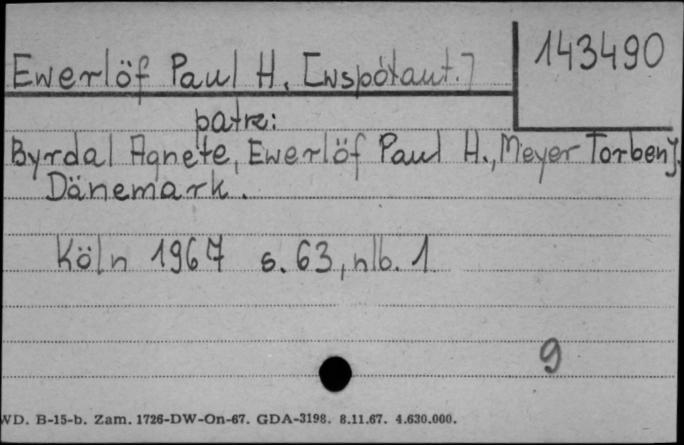 Ewerlöf Paul H. [współaut.]
143490
patrz:
Byrdal Agnete, Ewerlöf Paul H., Meyer Torben J.
Dänemark.
Köln 1967 s. 63, nlb. 1
9
WD. B-15-b. Zam. 1726-DW-On-67. GDA-3198. 8.11.67. 4.630.000.